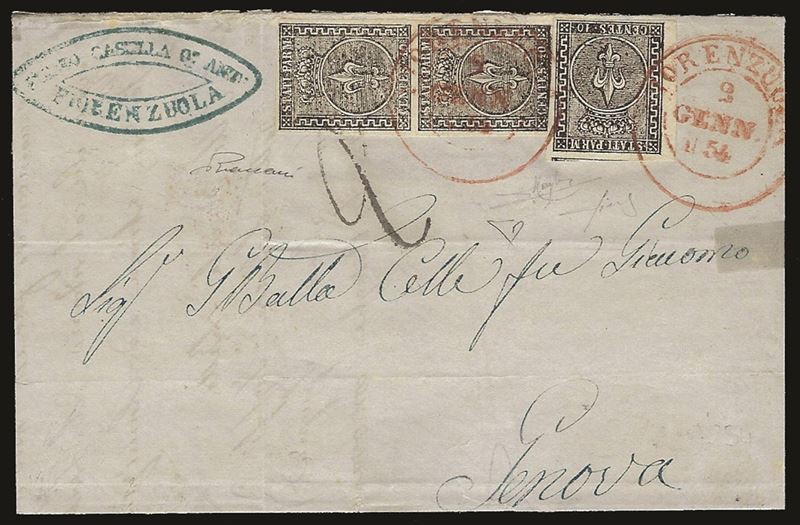 CASELLA
FIORENZUOLA
STATI PARM.
CENTES. 10
STATI PARM.
CENTES. 10
CENTES. 10
STATI PARM.
FIORENZUOLA
2
GENN.
1854
9
Sigr GBalla Celle fu Giacomo
Genova